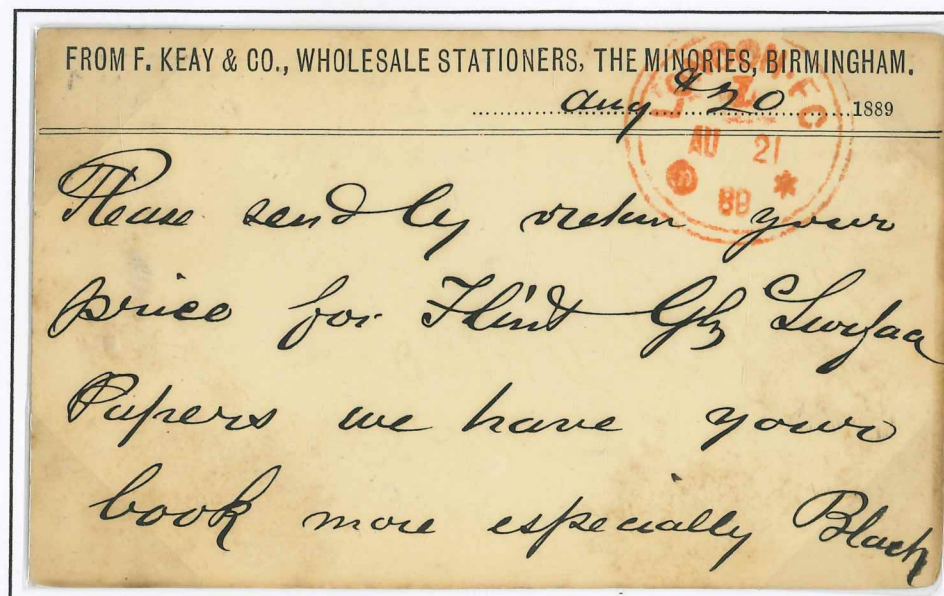 FROM F. KEAY & CO., WHOLESALE STATIONERS, THE MINORIES, BIRMINGHAM.
Aug 20 1889
LONDON E C
Z
AU 21
89
Please send by return your
price for Flint Glz Surface
Papers we have your
book more especially Black